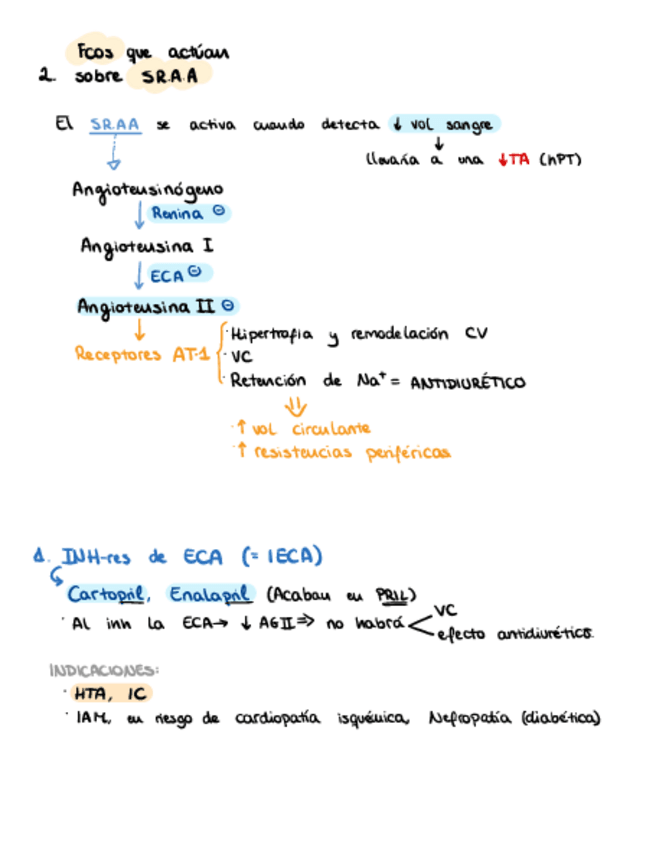 Fcos que actúan
2. sobre S.R.A.A
El SRAA se activa cuando detecta ↓ vol sangre
↓
llevaría a una ↓TA (hPT)
Angiotensinógeno
↓ Renina ⊖
Angiotensina I
↓ ECA ⊖
Angiotensina II ⊖
↓
Receptores AT-1
· Hipertrofia y remodelación CV
· VC
· Retención de Na⁺ = ANTIDIURÉTICO
⇓
· ↑ vol circulante
· ↑ resistencias periféricas
1. INH-res de ECA (= IECA)
Cartopril, Enalapril (Acaban en PRIL)
· Al inh la ECA → ↓ AGII => no habrá < VC
efecto antidiurético.
INDICACIONES:
· HTA, IC
· IAM, en riesgo de cardiopatía isquémica, Nefropatía (diabética)